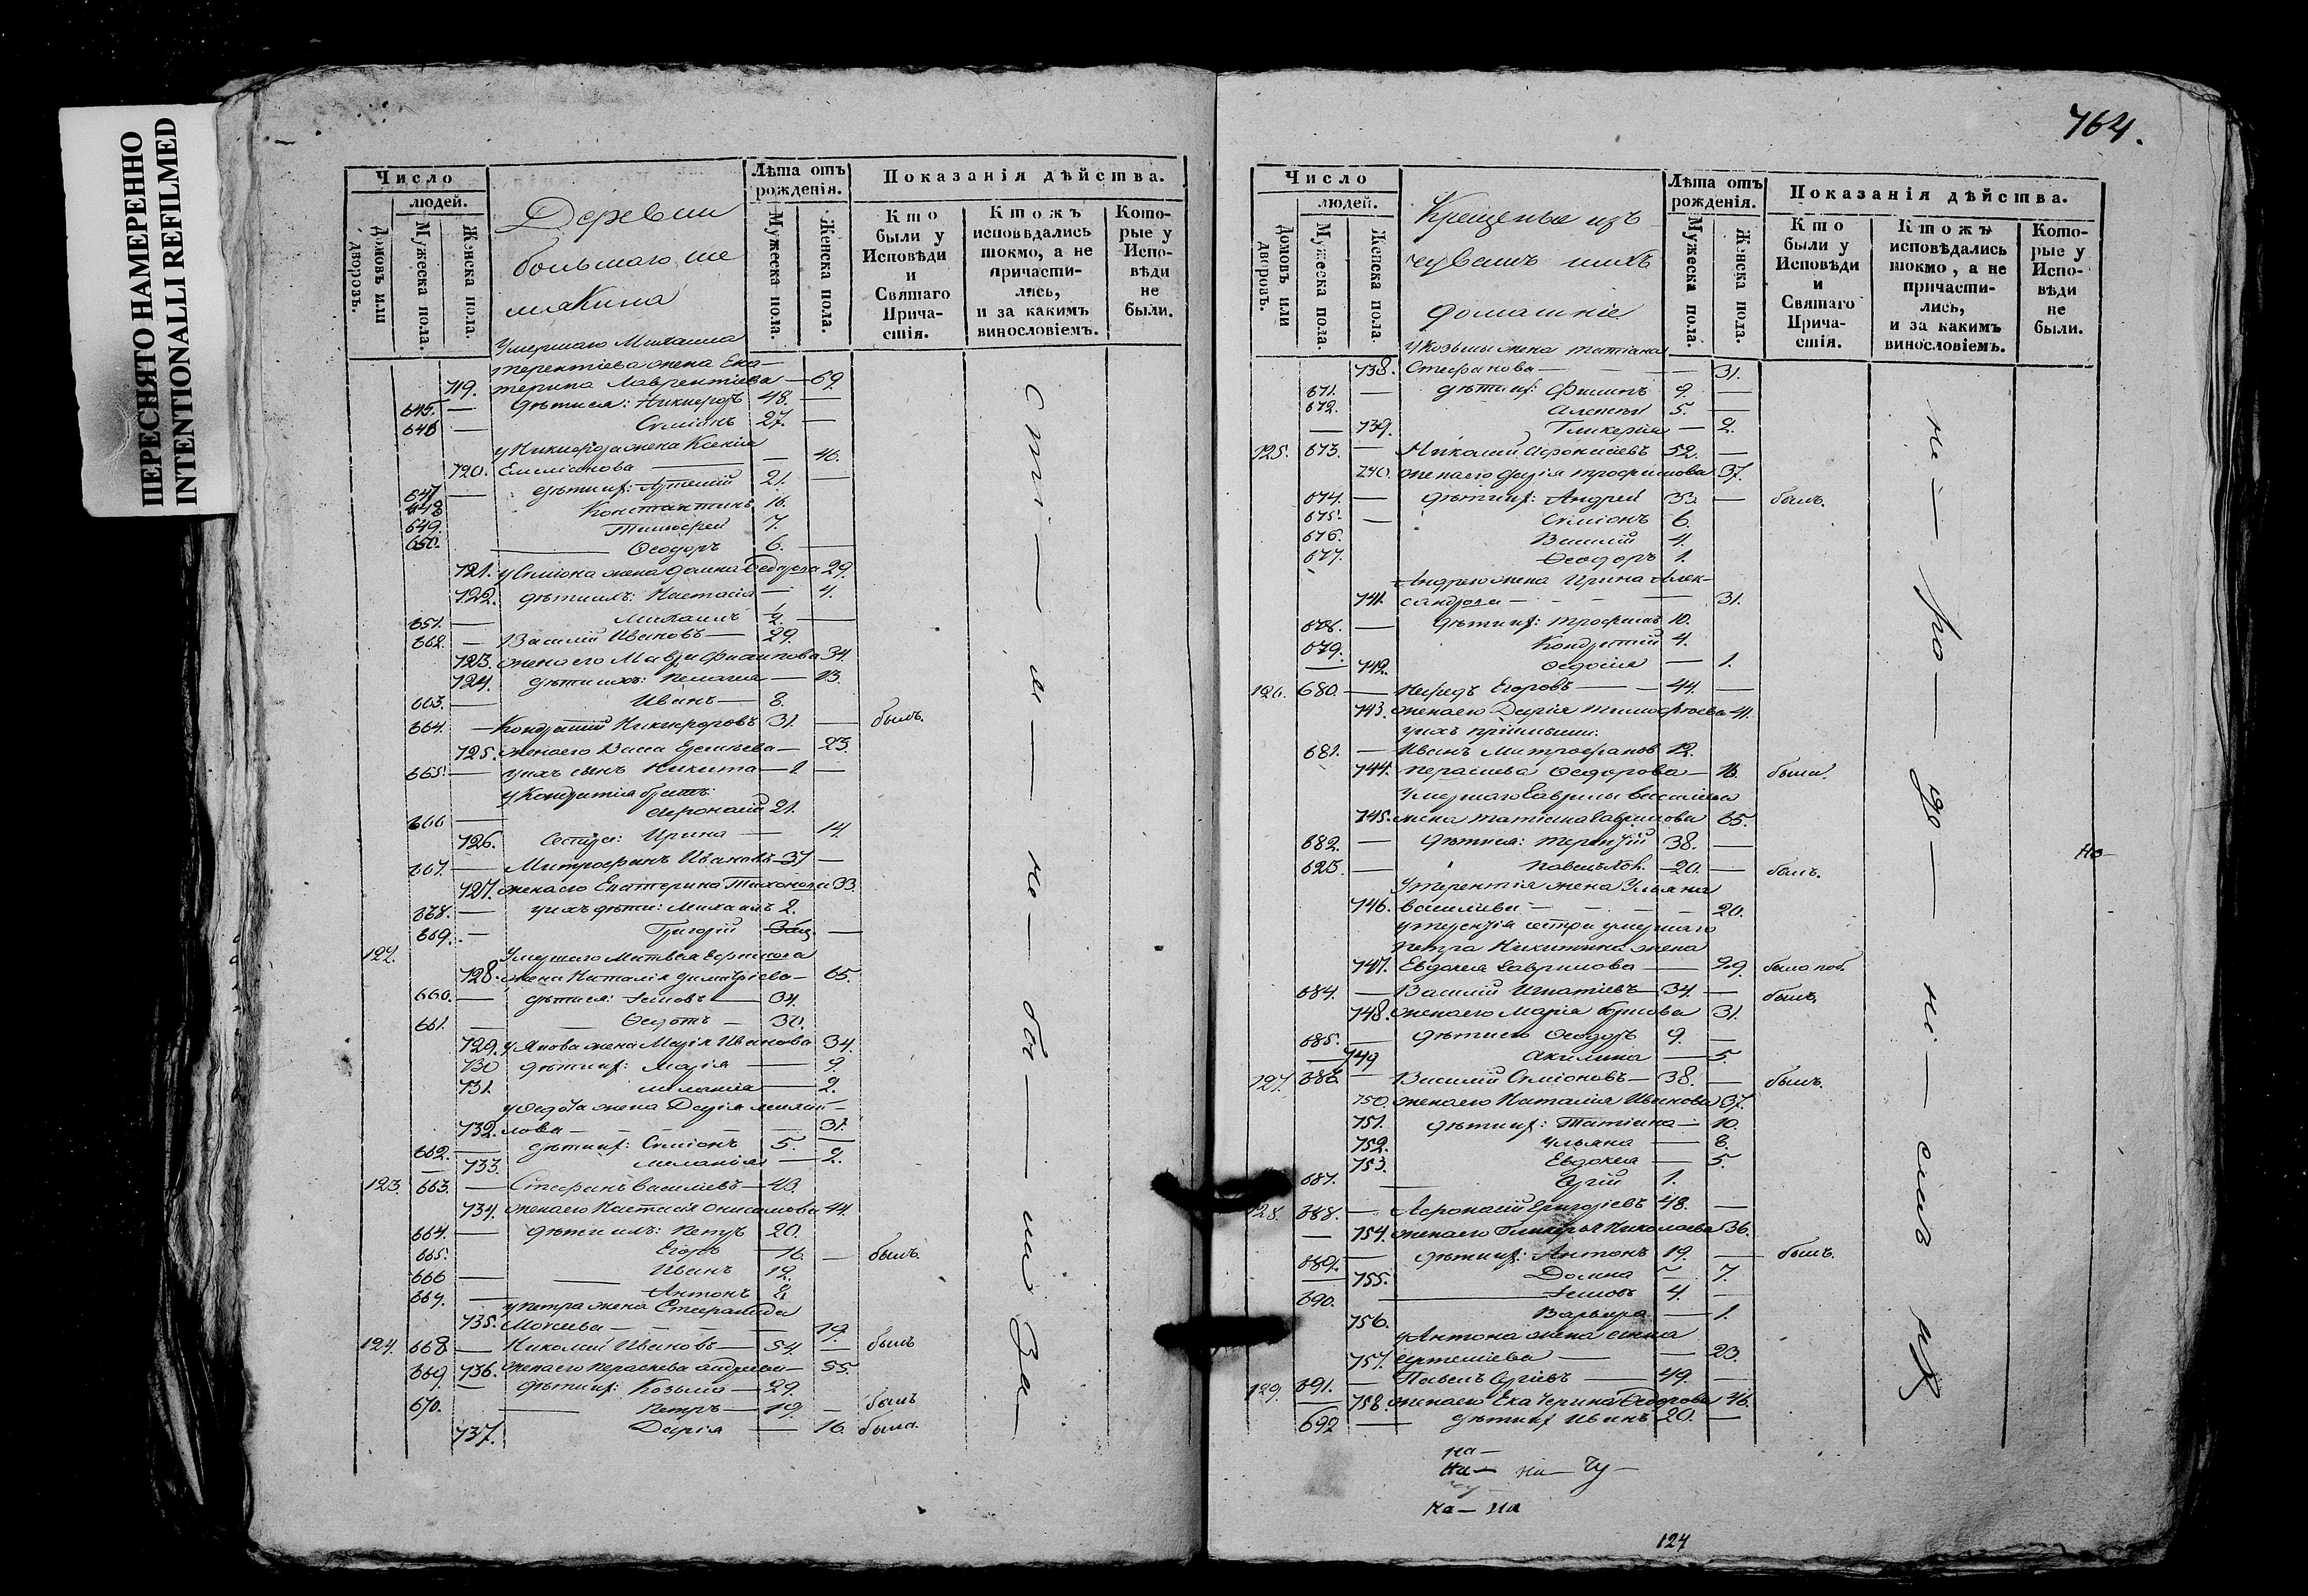 ПЕРЕСНЯТО НАМЕРЕННО
INTENTIONALLI REFILMED
Число
людей.
Домовъ или дворовъ.
Мужеска пола.
Женска пола.
Деревни
большаго ше
мякина
Лѣта отъ рожденія.
Мужеска пола.
Женска пола.
Показанія дѣйства.
Кто были у Исповѣди и Святаго Причастія.
Ктожъ исповѣдались токмо, а не причастились, и за какимъ винословіемъ.
Которые у Исповѣди не были.
Умершаго Михаила
терентіева жена Ека-
719. терина Лаврентіева — 69.
645. — дѣти ея: Никифоръ 48. —
646 — Симіонъ 27. —
у Никифора жена Ксенія
720. Емеліанова — 46.
647 — дѣти их: 21. —
648 Константинъ 16.
649. Тимофей 7.
650. Феодоръ 6. —
721. у Симіона жена Домна Федорова 29.
722. дѣти ихъ: Настасія — 4.
651. — Михаилъ —
652. — Василій Ивановъ — 29.
723. жена его Мавра Филипова 34.
724. дѣти ихъ: Пелагея — 13.
653. — Иванъ — 8.
654. — Кондратій Никифоровъ 31. — былъ.
725. жена его Васса — 23.
655. — у ихъ сынъ Никита — 1 —
у Кондратія братъ:
656 — Афонасій 21.
726. сестра: Ирина — 14.
657. — Митрофанъ Ивановъ 37 —
727. жена его Екатерина Тихонова 33.
658. — у ихъ дѣти: Михаилъ 2.
659. — Григорій —
122. Умершаго Матвея
728. жена Наталія Димитріева — 65.
660. — дѣти ея: Iаковъ — 34.
661. — Федотъ — 30.
729. у Якова жена Марія Иванова 34.
730 дѣти их: Марія — 9.
731. — 2.
у Федота жена Дарія
732. лова — 31.
662. — дѣти их: Симіонъ 5. —
— 733. Меланія — 2.
123. 663. — Стефанъ Василіевъ — 43.
734. жена его Настасія 44.
664. — дѣти ихъ: Петръ 20.
665. Егоръ — 16. — былъ.
666 — Иванъ 12.
667. — Антонъ 8.
у Петра жена Стефанида
735. — 19.
124. 668 — Николай Ивановъ — 54 — былъ
736. жена его Параскева Андреева — 55.
669. — дѣти их: Козьма — 29.
670. — Петръ — 19. — былъ
737. Дарія — 16. была.
сти — и — но — бы — ли За —
764.
Число
людей.
Домовъ или дворовъ.
Мужеска пола.
Женска пола.
Крещеные изъ
чувашъ ихъ
домашніе
Лѣта отъ рожденія.
Мужеска пола.
Женска пола.
Показанія дѣйства.
Кто были у Исповѣди и Святаго Причастія.
Ктожъ исповѣдались токмо, а не причастились, и за какимъ винословіемъ.
Которые у Исповѣди не были.
у Козьмы жена Татіана
738. Стефанова — 31.
671. — дѣти их: Филипъ 9. —
672. Алексѣй 5. —
— 739. Гликерія — 2.
125. 673. — Николай Афонасіевъ 52. —
740. жена его Дарія Трофимова 37.
674. — дѣти их: Андрей 33 — былъ.
675. — Симіонъ 6.
676. Василій 4.
677. Феодоръ 1.
у Андрея жена Ирина Алек-
741. сандрова — 31.
678. — дѣти их: Трофимъ 10.
679. Кондратій 4.
— 742. Федосія — 1.
126. 680. — Егоровъ — 44. —
743. жена его Дарія Тимофѣева 41.
у ихъ пріимыши:
681. — Иванъ Митрофанов 12.
744. Параскева Федорова — 16 были.
Умершаго Гаврилы
745. жена Татіана Гаврилова 65.
682. — дѣти ея: Терентій 38. —
683. — Павелъ хол. — 20. — былъ.
у Терентія жена Ульяна
746. Василіева — 20.
у Терентія сестра умершаго
Петра Никитина жена
747. Евдокея Гаврилова — 29.
684. — Василій Игнатіевъ — 34. — былъ,
748. жена его Марія 31.
685. — дѣти его Феодоръ 9. —
— 749 Акилина — 5.
127. 686. — Василій Симіоновъ — 38. — былъ.
750. жена его Наталія Иванова 37.
751. дѣти их: Татіана — 10.
752. Ульяна — 8.
753. Евдокея — 5.
687. — Сергій 1.
128. 688. — Афонасій Григоріевъ 48. —
— 754. жена его Гликерія Николаева 36.
689. — дѣти их: Антонъ 19. — былъ.
— 755. Домна — 7.
690. — Iаковъ 4. —
756. Варвара — 1.
у Антона жена Анна
757. Артеміева — 23.
129. 691. — Павелъ Сергіевъ — 49. —
— 758. жена его Екатерина Федорова 46.
692 — дѣти их Иванъ 20. —
не — ра — дѣ — ні — емъ
но —
на —
на — на — чу —
на — на
124